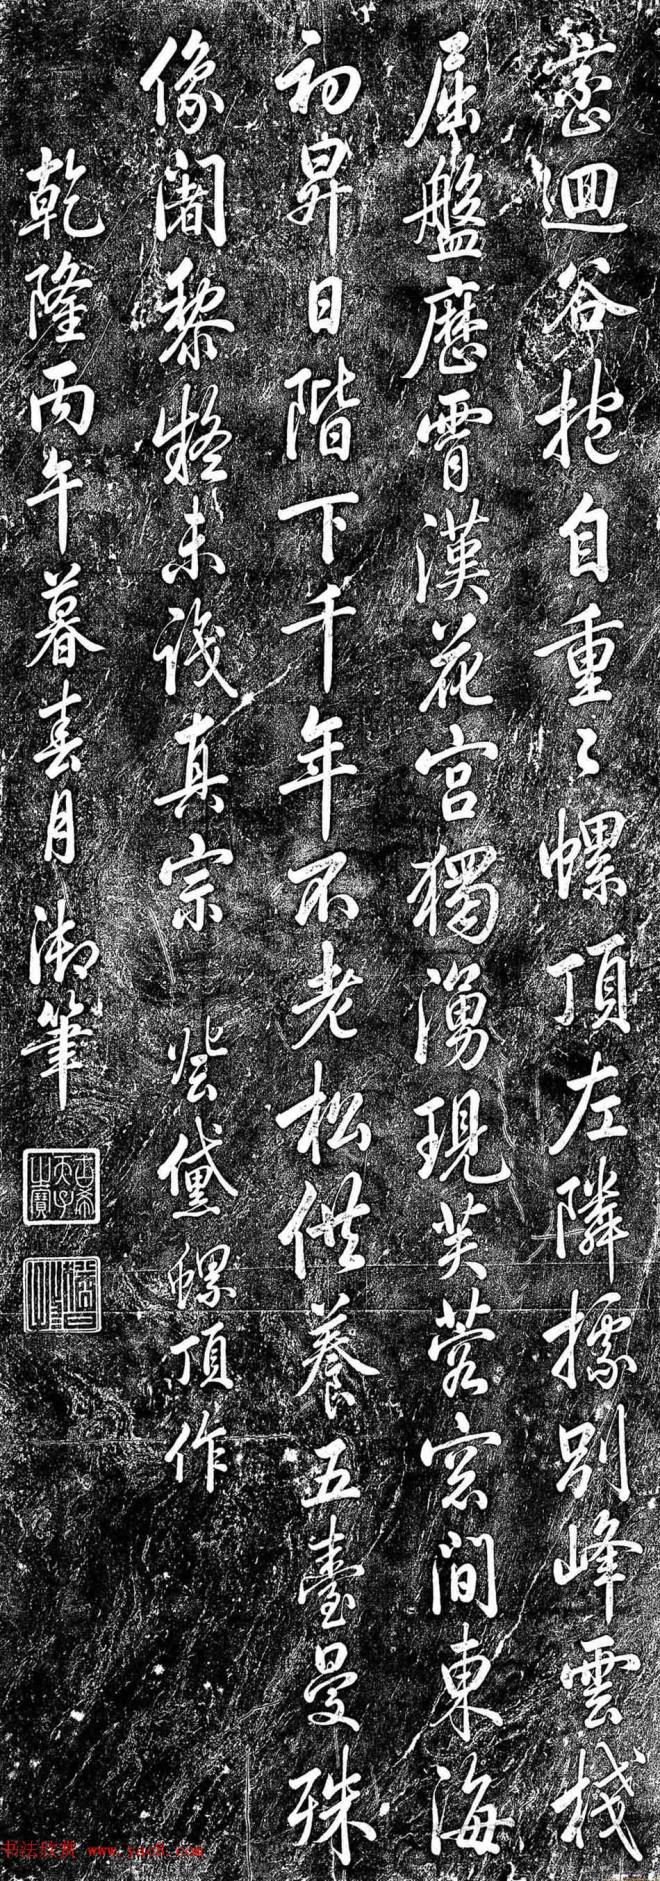 巒迴谷抱自重〻螺頂左隣據別峰雲棧
屈盤歷霄漢花宮獨湧現芙蓉窓間東海
初昇日階下千年不老松供養五臺曼殊
像闍黎疑未識真宗 登黛螺頂作
乾隆丙午暮春月御筆
古希天子之寶
猶日孜孜
书法欣赏 www.yac8.com